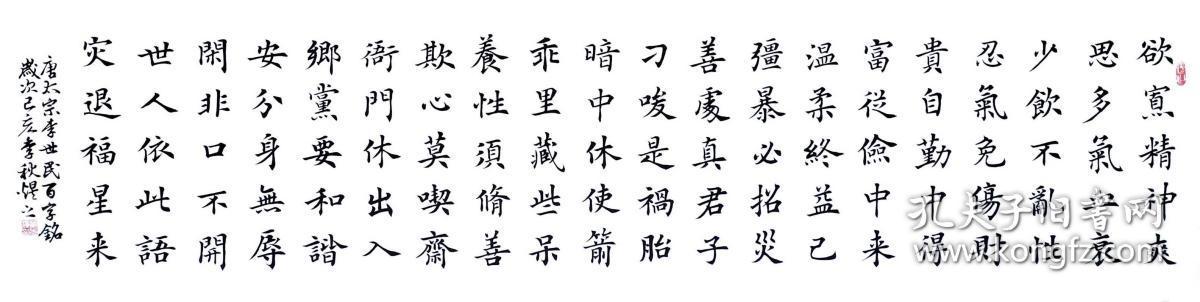 欲寡精神爽
思多氣血衰
少飲不亂性
忍氣免傷財
貴自勤中得
富從儉中来
温柔終益己
彊暴必招災
善處真君子
刁唆是禍胎
暗中休使箭
乖里藏些呆
養性須脩善
欺心莫喫齋
衙門休出入
鄉黨要和諧
安分身無辱
閑非口不開
世人依此語
灾退福星来
唐太宗李世民百字銘
歲次己亥李秋煜
孔夫子旧書网
kongfz.com